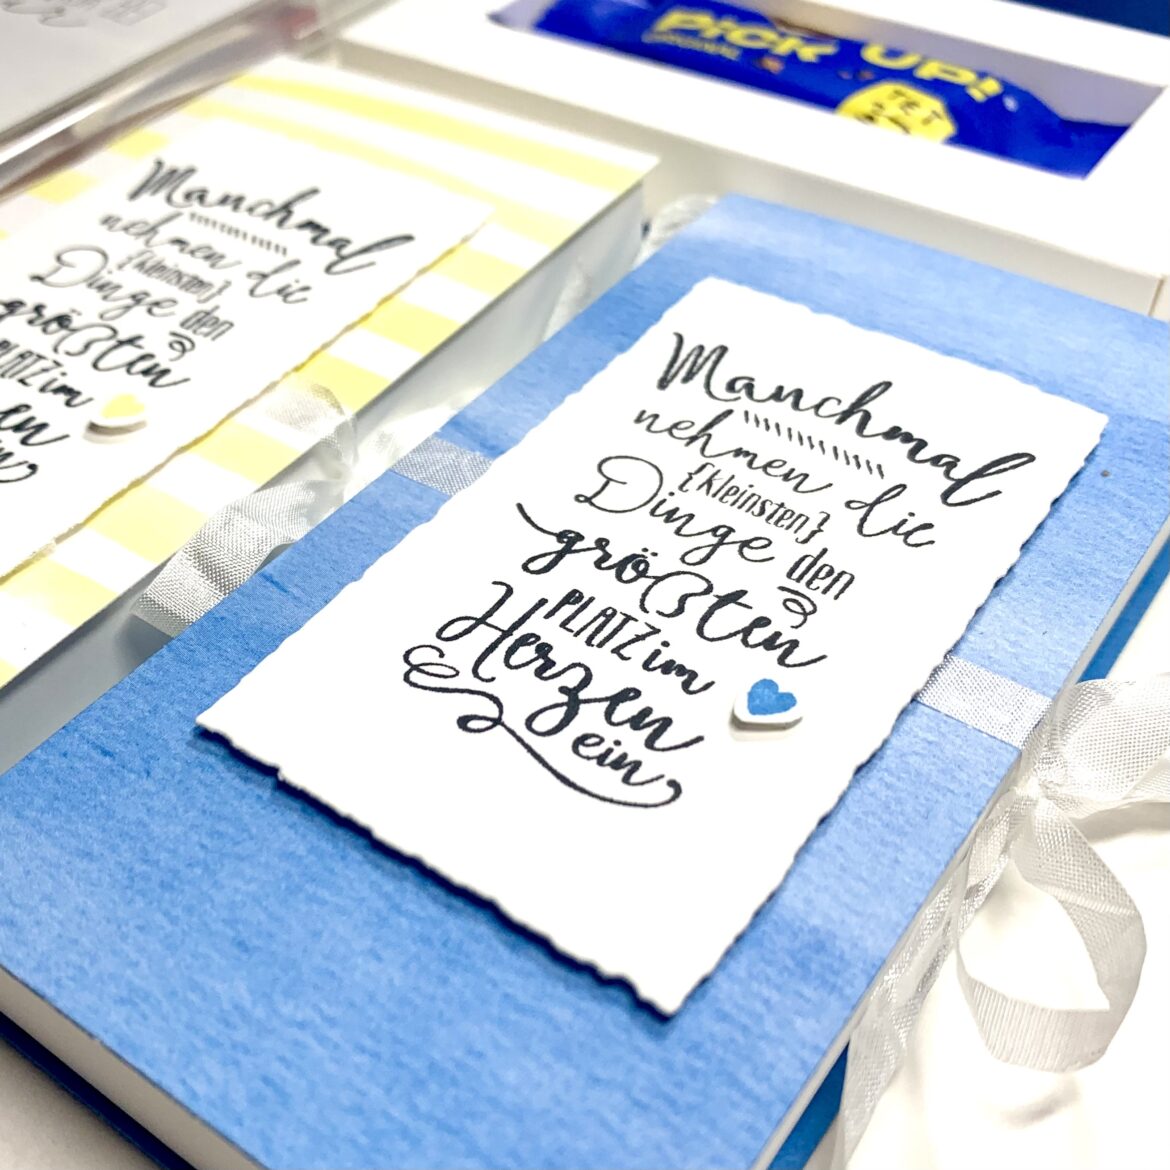 PiCK UP!
Manchmal
nehmen die
{kleinsten}
Dinge den
größten
PLATZ im
Herzen
ein
Manchmal
nehmen die
{kleinsten}
Dinge den
größten
PLATZ im